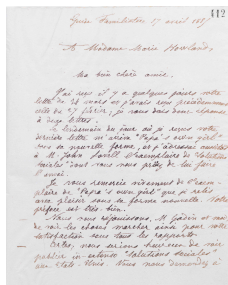 412
Guise Familistère 17 avril 187
À Madame Marie Howland,
Ma bien chère amie,
J'ai reçu il y a quelques jours votre
lettre du 24 mars et j'avais reçu précédemment
celle du 27 février; je vous dois donc réponse
à deux lettres.
Le lendemain du jour où je reçus votre
dernière lettre m'arriva "Papa's own girl"
sous sa nouvelle forme, et j'adressai
à M. John Lovell l'exemplaire de "Solutions
sociales" dont vous nous priez de lui faire
l'envoi.
Je vous remercie vivement de l'exem-
plaire de "Papa's own girl" que je relis
avec plaisir sous sa forme nouvelle. Votre
préface est très bien.
Nous nous réjouissons, M. Godin et moi
de voir les choses marcher ainsi pour votre
satisfaction sous tous les rapports.
Certes, nous serions heureux de voir
publier in-extenso "Solutions sociales"
aux États-Unis. Vous nous demandez à